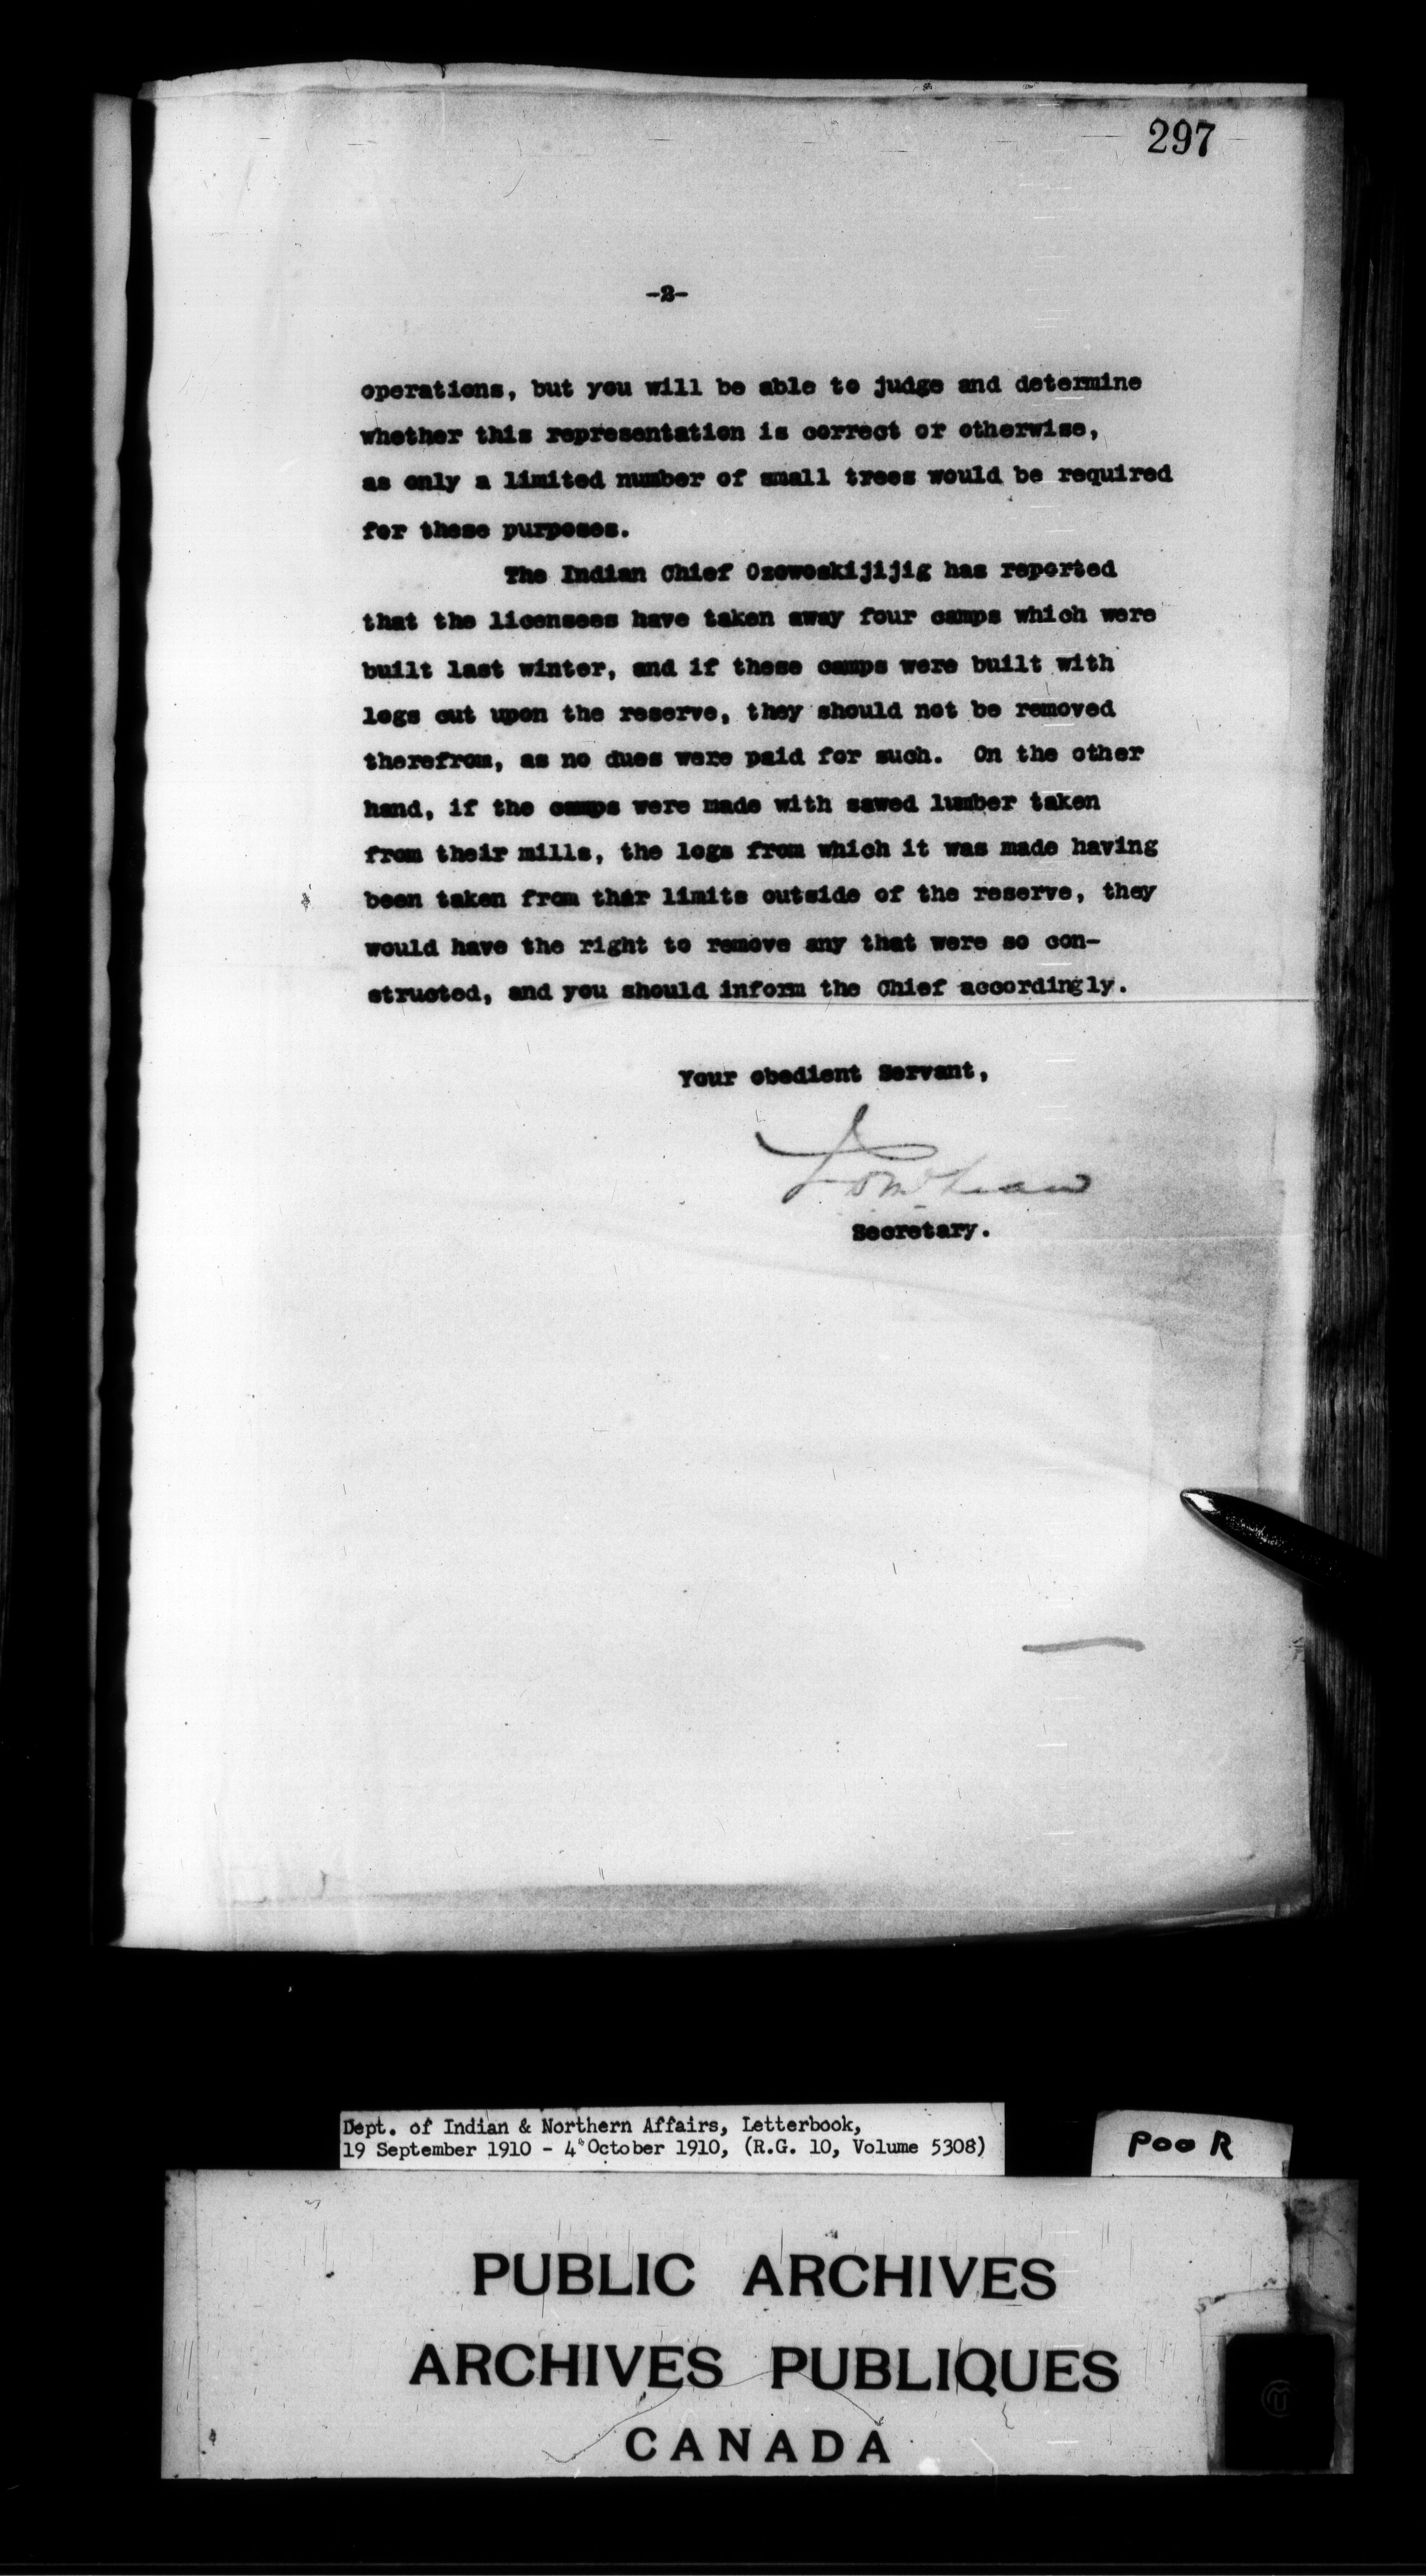 297
-2-
operations, but you will be able to judge and determine
whether this representation is correct or otherwise,
as only a limited number of small trees would be required
for these purposes.
The Indian Chief Ozewoskijijig has reported
that the licensees have taken away four camps which were
built last winter, and if these camps were built with
logs cut upon the reserve, they should not be removed
therefrom, as no dues were paid for such. On the other
hand, if the camps were made with sawed lumber taken
from their mills, the logs from which it was made having
been taken from thår limits outside of the reserve, they
would have the right to remove any that were so con-
structed, and you should inform the Chief accordingly.
Your obedient Servant,
Secretary.
Dept. of Indian & Northern Affairs, Letterbook,
19 September 1910 - 4 October 1910, (R.G. 10, Volume 5308)
POOR
PUBLIC ARCHIVES
ARCHIVES PUBLIQUES
CANADA